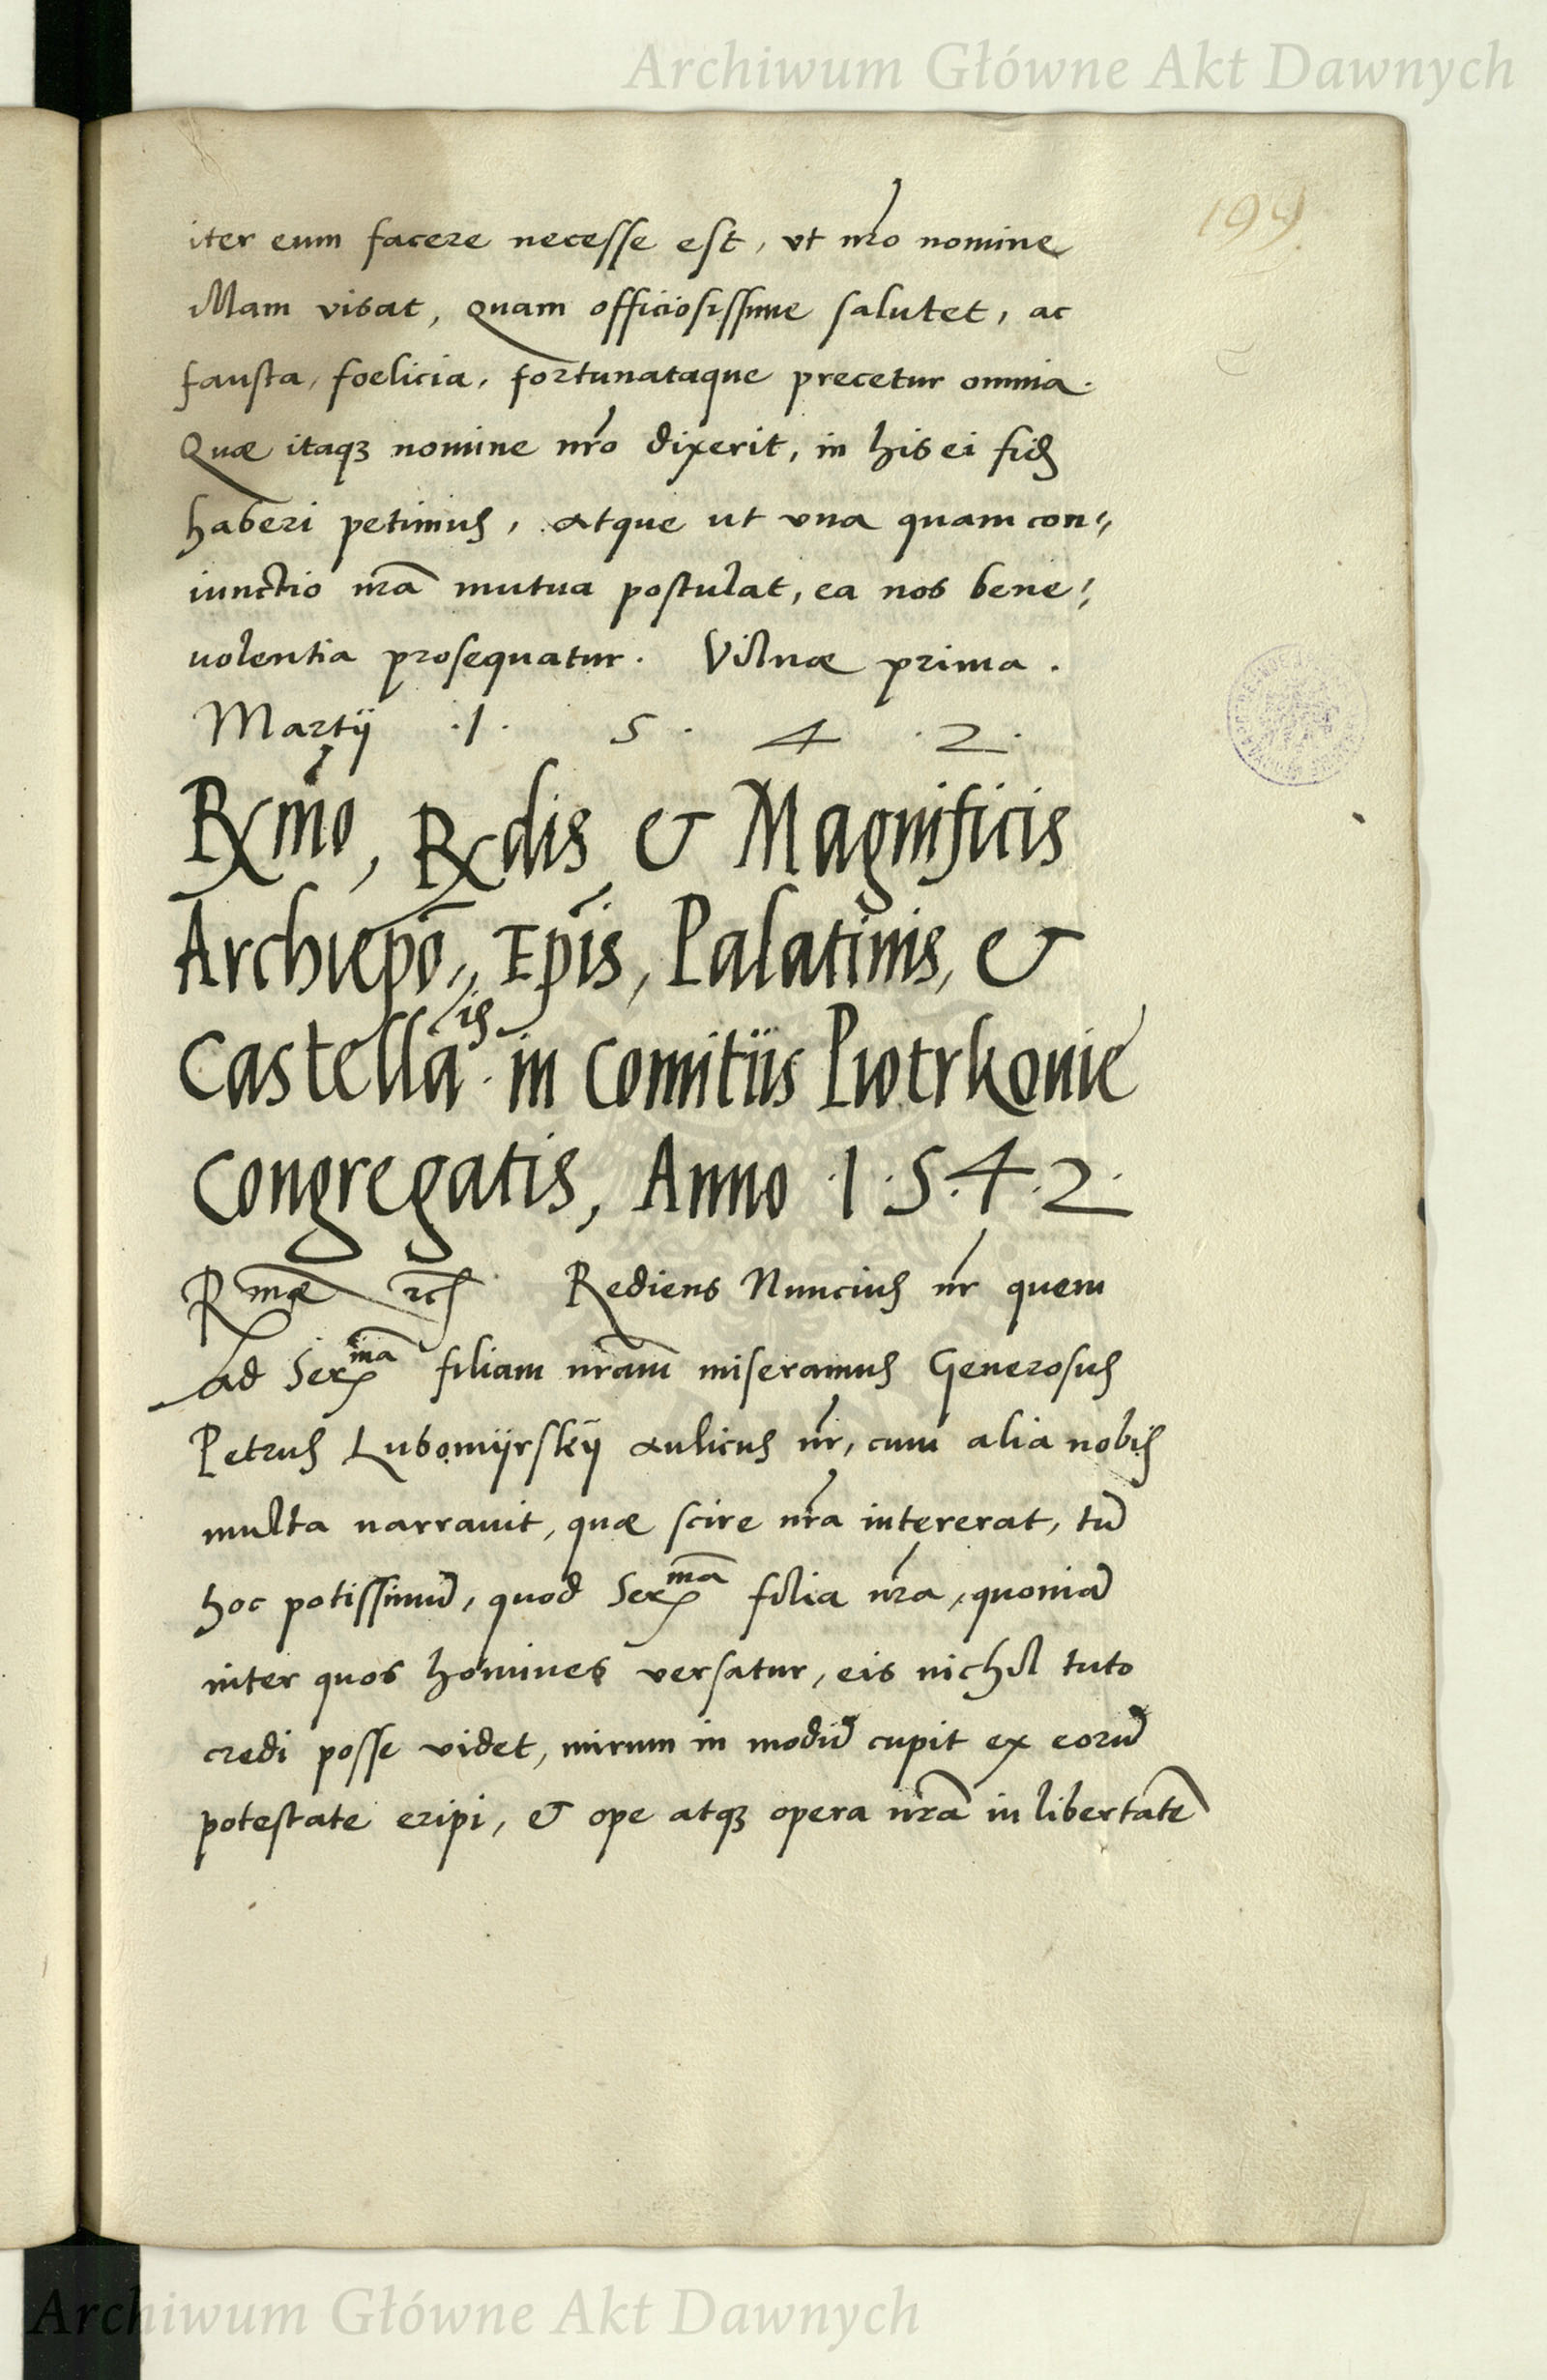 Archiwum Główne Akt Dawnych
199
iter eum facere necesse est, vt nr̃o nomine
Illam visat, quam officiosissime salutet, ac
fausta, foelicia, fortunataque precetur omnia.
Quæ itaqꝫ nomine nr̃o dixerit, in his ei fidẽ
haberi petimus, atque ut vna quam con„
iunctio nr̃a mutua postulat, ea nos bene„
uolentia prosequatur. Vilnæ prima.
Martij .1. 5. 4 .2.
Rx̃mo, Rxdis & Magnificis
Archiepõ„ Ep̃is, Palatinis, &
Castellãis in Comitiis Piotrkouie
Congregatis, Anno .1.5.4.2.
Rmæ &c. Rediens Nuncius nr̃ quem
ad Serma filiam nr̃am miseramus Generosus
Petrus Lubomijrskij aulicus nr̃, cum alia nobis
multa narrauit, quæ scire nr̃a intererat, tũ
hoc potissimũ, quod Serma filia nr̃a, quoniã
inter quos homines versatur, eis nichil tuto
credi posse videt, mirum in modũ cupit ex eorũ
potestate eripi, & ope atqꝫ opera nr̃a in libertatẽ
Archiwum Główne Akt Dawnych